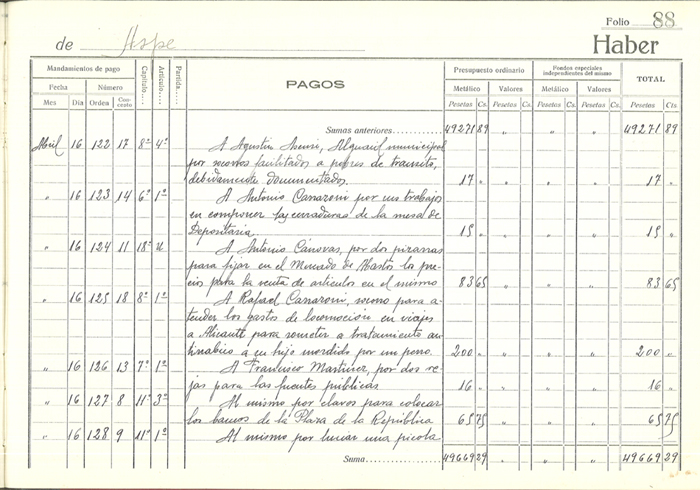 Folio 88
de Aspe
Haber
Mandamientos de pago
Capítulo
Artículo
Partida
PAGOS
Presupuesto ordinario
Fondos especiales independientes del mismo
TOTAL
Fecha Número
Metálico Valores Metálico Valores
Mes Día Orden Concepto
Pesetas Cs. Pesetas Cs. Pesetas Cs. Pesetas Cs. Pesetas Cts.
Sumas anteriores 49271 89 " " 49271 89
Abril 16 122 17 8º 4º A Agustín Asensi, Alguacil municipal
por socorros facilitados a pobres de transito,
debidamente documentados. 17 " " " 17 "
" 16 123 14 6º 1º A Antonio Cañizares por sus trabajos
en componer las cerraduras de la mesa de
Depositaria. 15 " " " 15 "
" 16 124 11 18º A Antonio Cánovas, por dos pizarras
para fijar en el Mercado de Abastos los pre-
cios para la venta de artículos en el mismo 83 65 " " 83 65
" 16 125 18 8º 1º A Rafael socorro para a-
tender los gastos de locomoción en viajes
a Alicante para someter a tratamiento an
tirrabico a un hijo mordido por un perro. 200 " " " 200 "
" 16 126 13 7º 1º A Francisco Martinez, por dos re-
jas para las fuentes públicas 16 " " " 16 "
" 16 127 8 11º 3º Al mismo por clavos para colocar
los bancos de la Plaza de la República 65 75 " " 65 75
" 16 128 9 11º 1º Al mismo por luciar una picola
Suma 49669 29 " " " " 49669 29